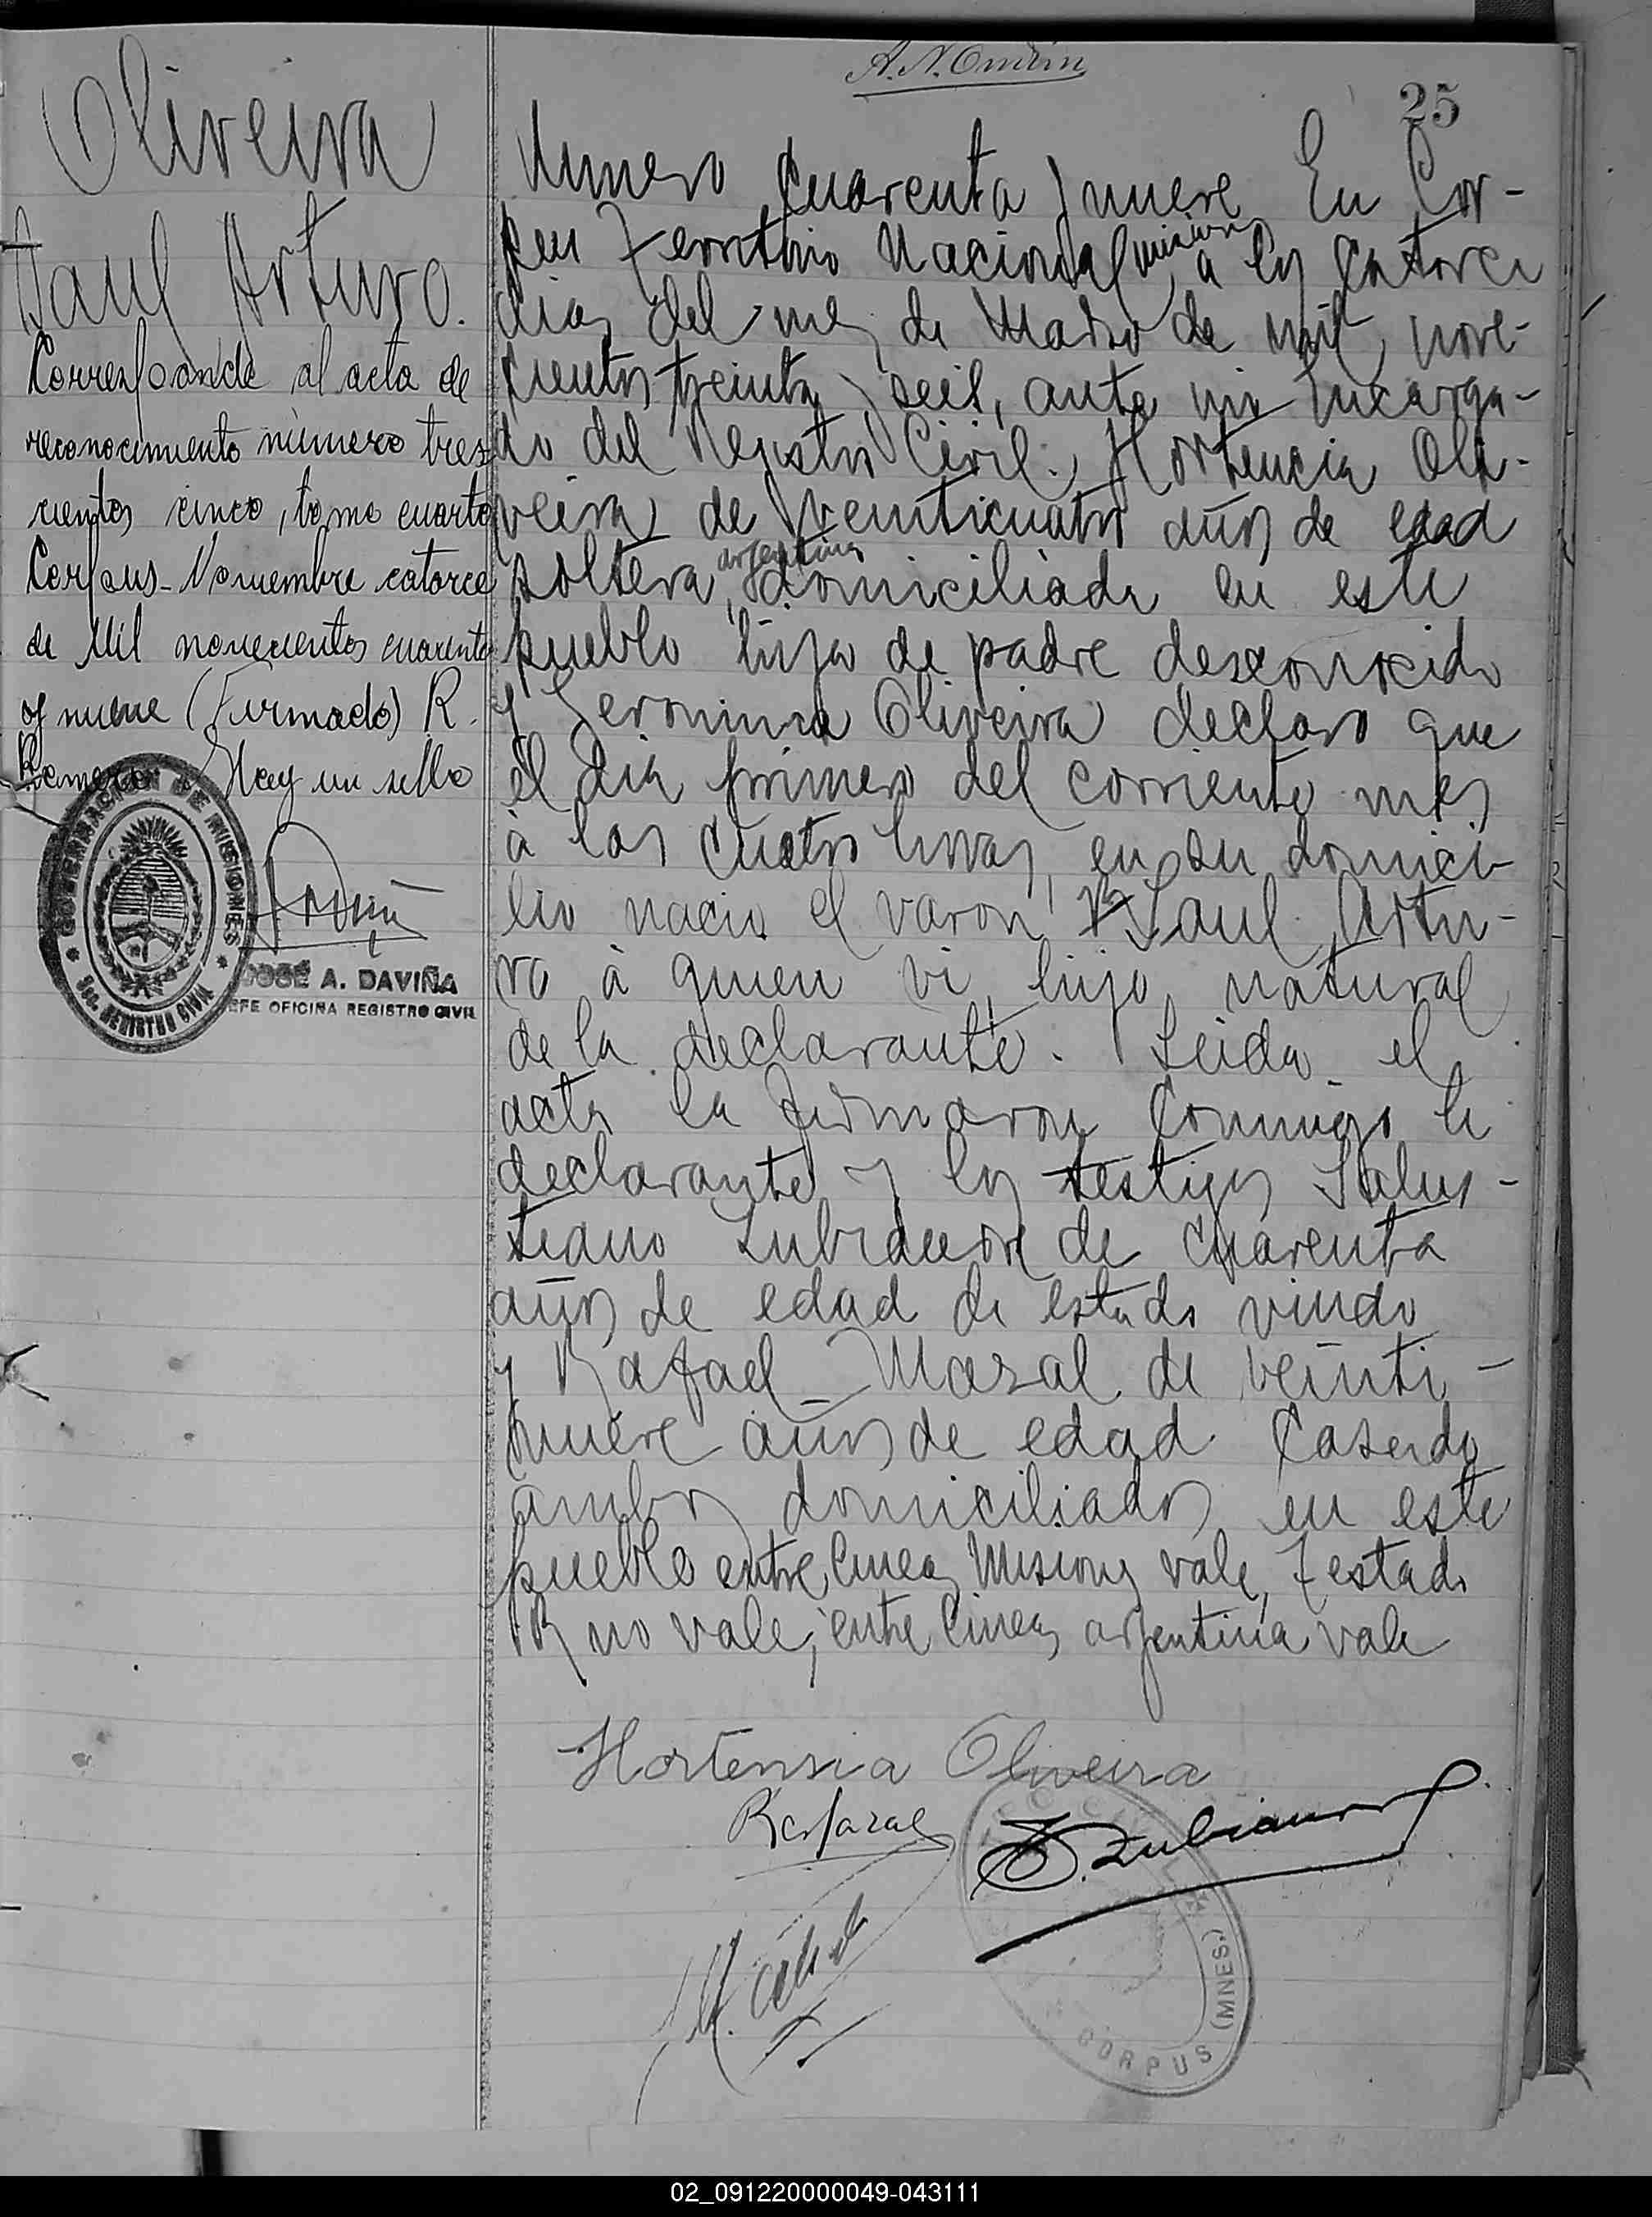 25
Oliveira
Saul Arturo.
Corresponde al acta de
reconocimiento número tres-
cientos cinco, tomo cuarto
Corpus-Noviembre catorce
de Mil novecientos cuarenta
y nueve (Firmado) R.
Romero Hay un sello
GOBERNACION DE MISIONES
Sec. REGISTRO CIVIL
JOSÉ A. DAVIÑA
JEFE OFICINA REGISTRO CIVIL
Numero Cuarenta y nueve En Cor-
pus Territorio Nacional misiones a los catorce
dias del mes de Marzo de mil nove-
cientos treinta y seis, ante mi Encarga-
do del Registro Civil. Hortencia Oli-
veira de veinticuatro años de edad
soltera argentina domiciliada en este
pueblo hija de padre desconocido
y Geronima Oliveira declaro que
el dia primero del corriente mes
à las cuatro horas, en su domici-
lio nacio el varon R Saul Artu-
ro à quien vi, hijo natural
de la declarante. Leida el
acta la firmaron conmigo la
declarante y los testigos Salus-
tiano de cuarenta
años de edad de estado viudo
y Rafael de veinti-
nueve años de edad Casado
ambos domiciliados en este
pueblo entre lineas Misiones vale, Testado
R no vale; entre lineas argentina vale
Hortensia Oliveira
CORPUS (MNES.)
02_091220000049-043111